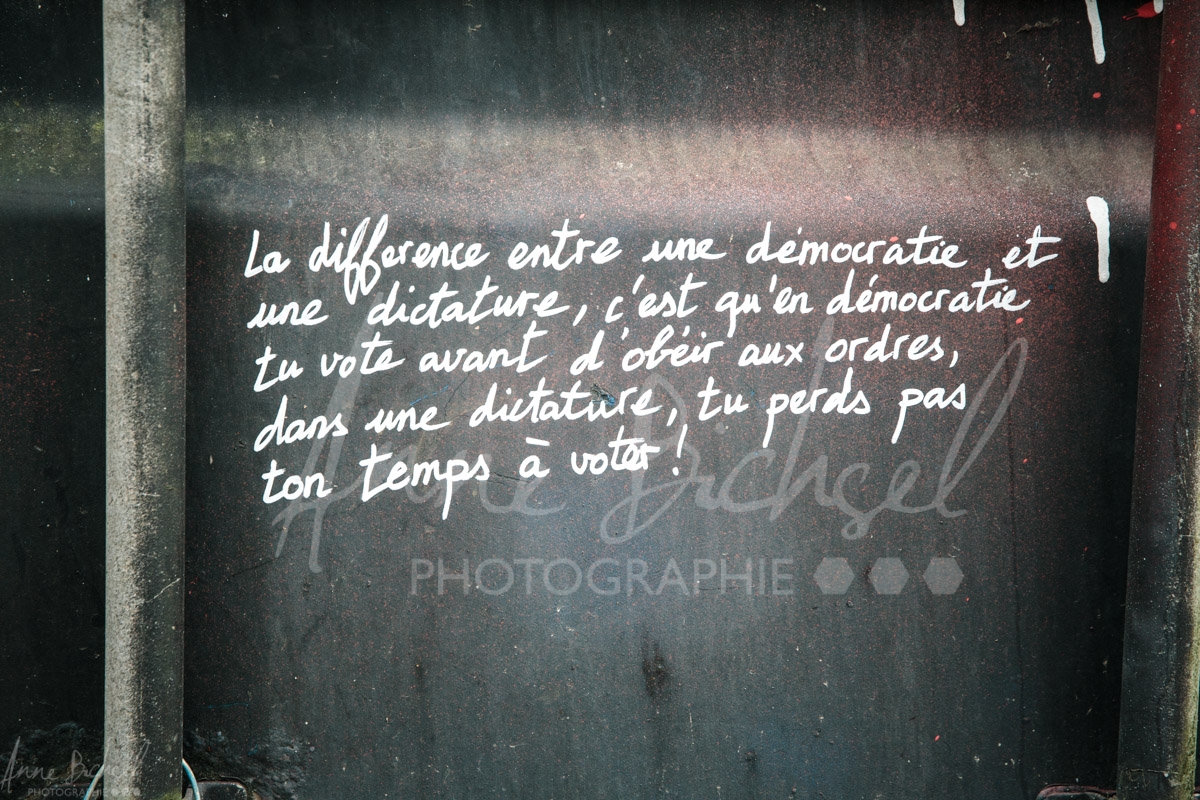 La difference entre une démocratie et
une dictature, c'est qu'en démocratie
tu vote avant d'obéir aux ordres,
dans une dictature, tu perds pas
ton temps à voter !
Anne Bichsel
PHOTOGRAPHIE
Anne Bichsel
PHOTOGRAPHIE